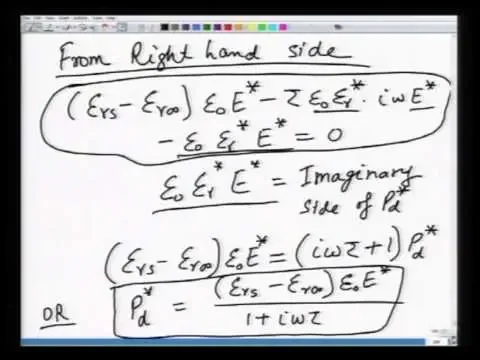 From Right hand side
(εrs − εr∞) ε₀E* − τ ε₀εr* · iωE*
− ε₀ εr* E* = 0
ε₀ εr* E* = Imaginary
side of Pd*
(εrs − εr∞) ε₀E* = (iωτ + 1) Pd*
OR Pd* = (εrs − εr∞) ε₀E* / 1 + iωτ